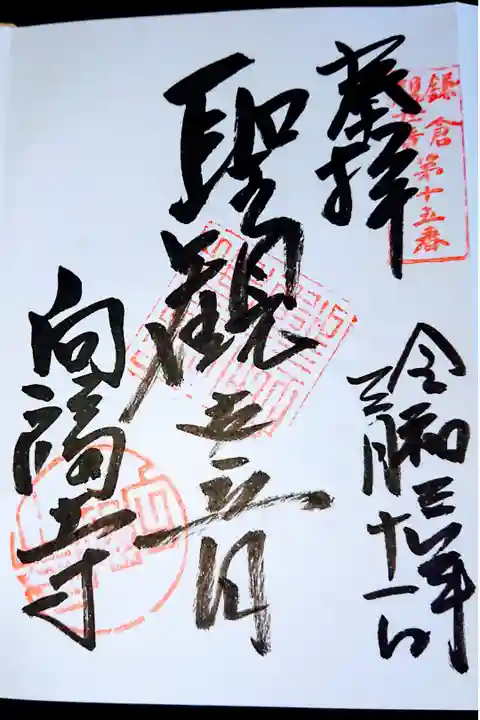 奉拝
鎌倉
観世音第十五番
令和三年
三月十一日
聖観世音
向福寺